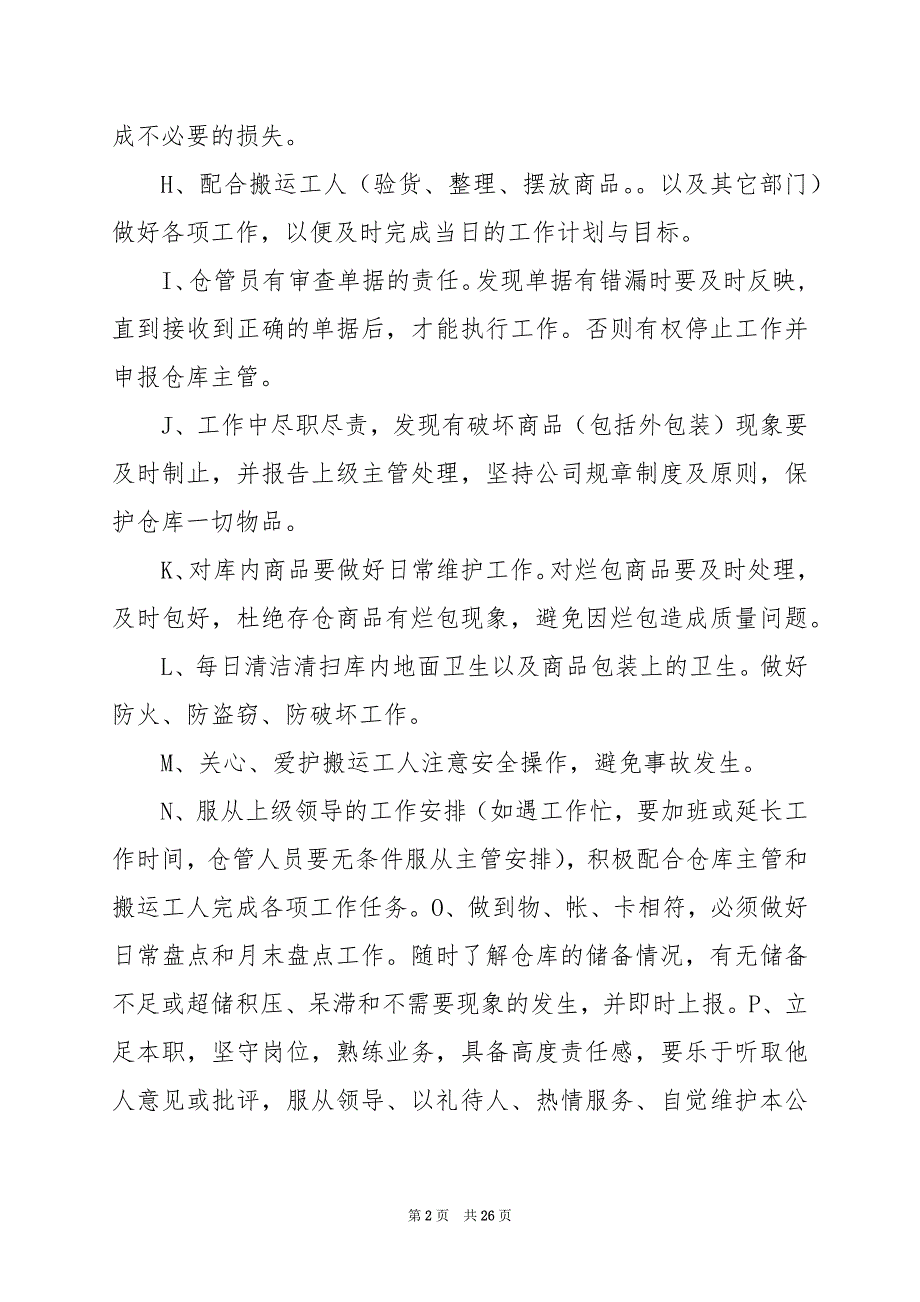 成不必要的损失。
H、配合搬运工人（验货、整理、摆放商品。。以及其它部门）
做好各项工作，以便及时完成当日的工作计划与目标。
I、仓管员有审查单据的责任。发现单据有错漏时要及时反映，
直到接收到正确的单据后，才能执行工作。否则有权停止工作并
申报仓库主管。
J、工作中尽职尽责，发现有破坏商品（包括外包装）现象要
及时制止，并报告上级主管处理，坚持公司规章制度及原则，保
护仓库一切物品。
K、对库内商品要做好日常维护工作。对烂包商品要及时处理，
及时包好，杜绝存仓商品有烂包现象，避免因烂包造成质量问题。
L、每日清洁清扫库内地面卫生以及商品包装上的卫生。做好
防火、防盗窃、防破坏工作。
M、关心、爱护搬运工人注意安全操作，避免事故发生。
N、服从上级领导的工作安排（如遇工作忙，要加班或延长工
作时间，仓管人员要无条件服从主管安排），积极配合仓库主管和
搬运工人完成各项工作任务。O、做到物、帐、卡相符，必须做好
日常盘点和月末盘点工作。随时了解仓库的储备情况，有无储备
不足或超储积压、呆滞和不需要现象的发生，并即时上报。P、立
足本职，坚守岗位，熟练业务，具备高度责任感，要乐于听取他
人意见或批评，服从领导、以礼待人、热情服务、自觉维护本公
第 2 页 共 26 页